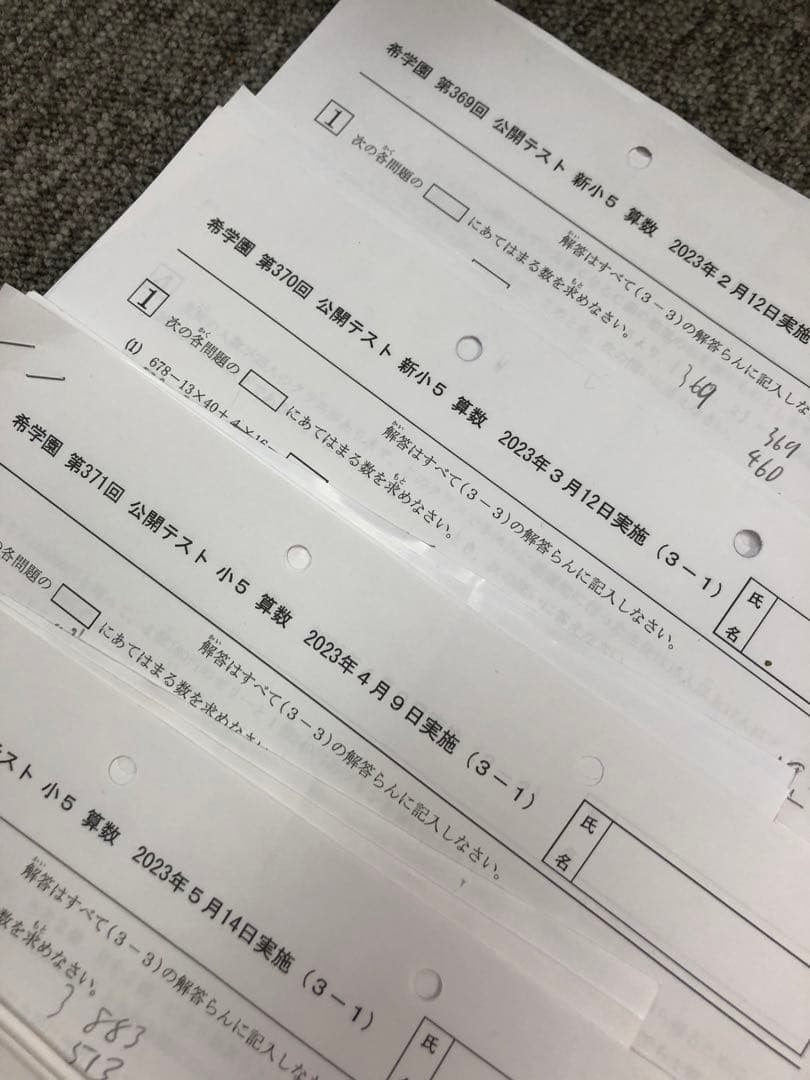 希学園 第369回 公開テスト 新小5 算数 2023年2月12日実施
解答はすべて(3-3)の解答らんに記入しな
1 次の各問題の にあてはまる数を求めなさい。
369
369
460
希学園 第370回 公開テスト 新小5 算数 2023年3月12日実施 (3-1)
解答はすべて(3-3)の解答らんに記入しなさい。
氏名
1 次の各問題の にあてはまる数を求めなさい。
(1) 678-13×40+4×16=
希学園 第371回 公開テスト 小5 算数 2023年4月9日実施 (3-1)
解答はすべて(3-3)の解答らんに記入しなさい。
氏名
の各問題の にあてはまる数を求めなさい
スト 小5 算数 2023年5月14日実施 (3-1)
解答はすべて(3-3)の解答らんに記入しなさい。
氏
数を求めなさい。
3 883
513